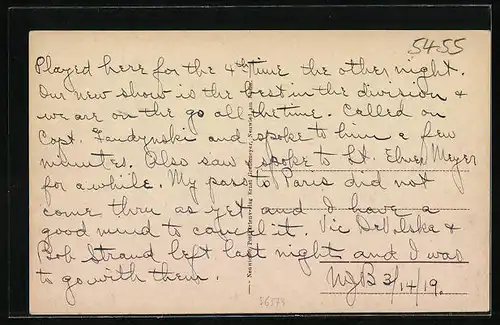 5455
Played here for the 4th time the other night.
Our new show is the best in the division &
we are on the go all the time. Called on
Capt. Fandynski and spoke to him a few
minutes. Also saw & spoke to Lt. Elmer Meyer
for a while. My pass to Paris did not
come thru as yet and I have a
good mind to cancel it. Vic &
Bob Strand left last night and I was
to go with them.
MJB 3/14/19.